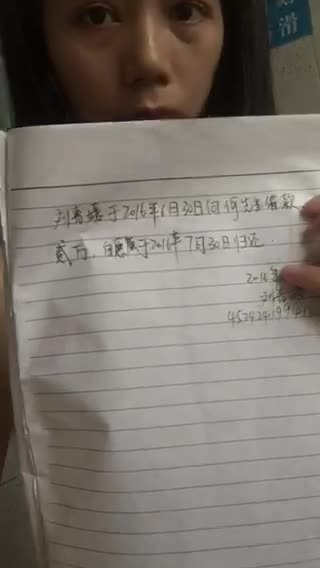 刘于2016年6月30日向何先生借款
贰万，自愿于2016年7月30日归还.
2016年
刘